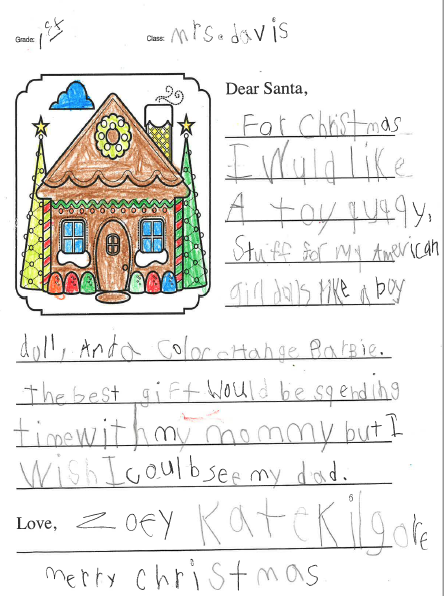 Grade: 1st Class: mrs. davis
Dear Santa,
For Christmas
I Wuld like
A toy
Stuff for my American
girl dolls like a boy
doll, And a Color change Barbie.
the best gift Would be spending
time with my mommy but I
Wish I coulb see my dad.
Love, Zoey Kate Kilgore
merry christmas